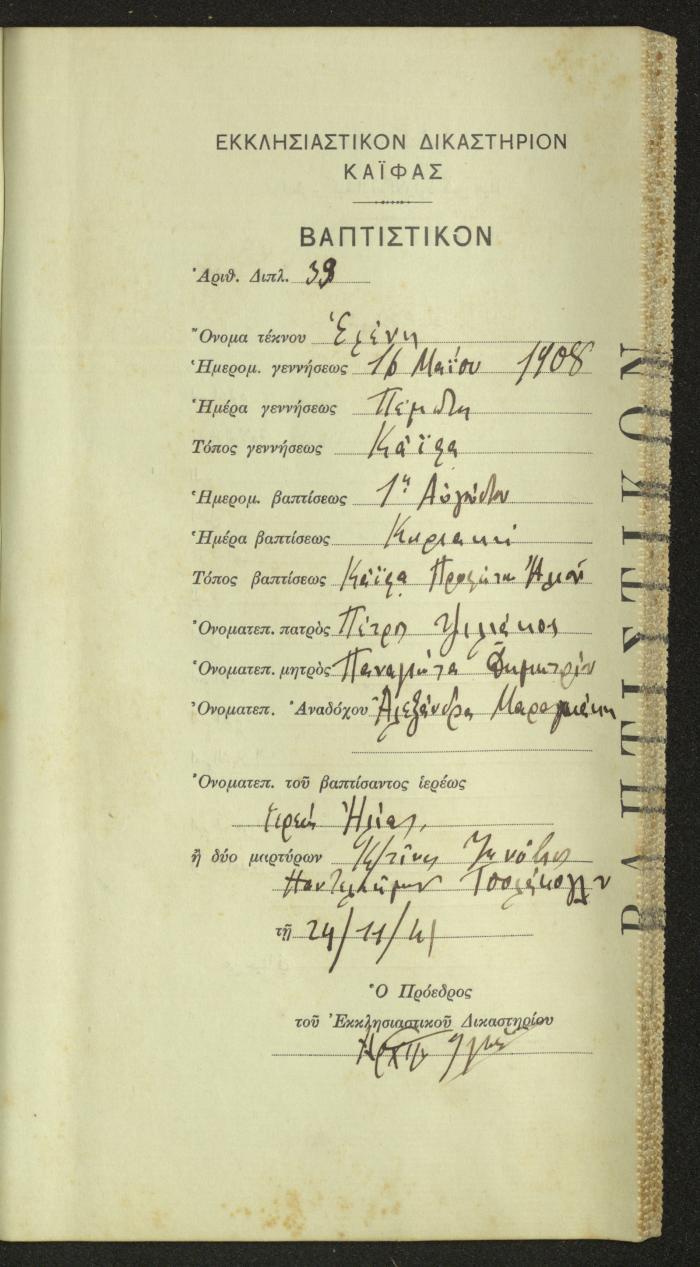 ΕΚΚΛΗΣΙΑΣΤΙΚΟΝ ΔΙΚΑΣΤΗΡΙΟΝ
ΚΑΪΦΑΣ
ΒΑΠΤΙΣΤΙΚΟΝ
Ἀριθ. Διπλ. 39
Ὄνομα τέκνου Ἑλένη
Ἡμερομ. γεννήσεως 16 Μαΐου 1908
Ἡμέρα γεννήσεως Πέμπτη
Τόπος γεννήσεως Κάϊφα
Ἡμερομ. βαπτίσεως 1η Αὐγούστου
Ἡμέρα βαπτίσεως Κυριακή
Τόπος βαπτίσεως Κάϊφα Προφήτου Ἠλιού
Ὀνοματεπ. πατρὸς Πέτρος
Ὀνοματεπ. μητρὸς Παναγιώτα Δημητρίου
Ὀνοματεπ. Ἀναδόχου Ἀλεξάνδρα
Ὀνοματεπ. τοῦ βαπτίσαντος ἱερέως
Ἱερεὺς Ἠλίας
ἢ δύο μαρτύρων
τῇ 24/11/41
Ὁ Πρόεδρος
τοῦ Ἐκκλησιαστικοῦ Δικαστηρίου
ΒΑΠΤΙΣΤΙΚΟΝ